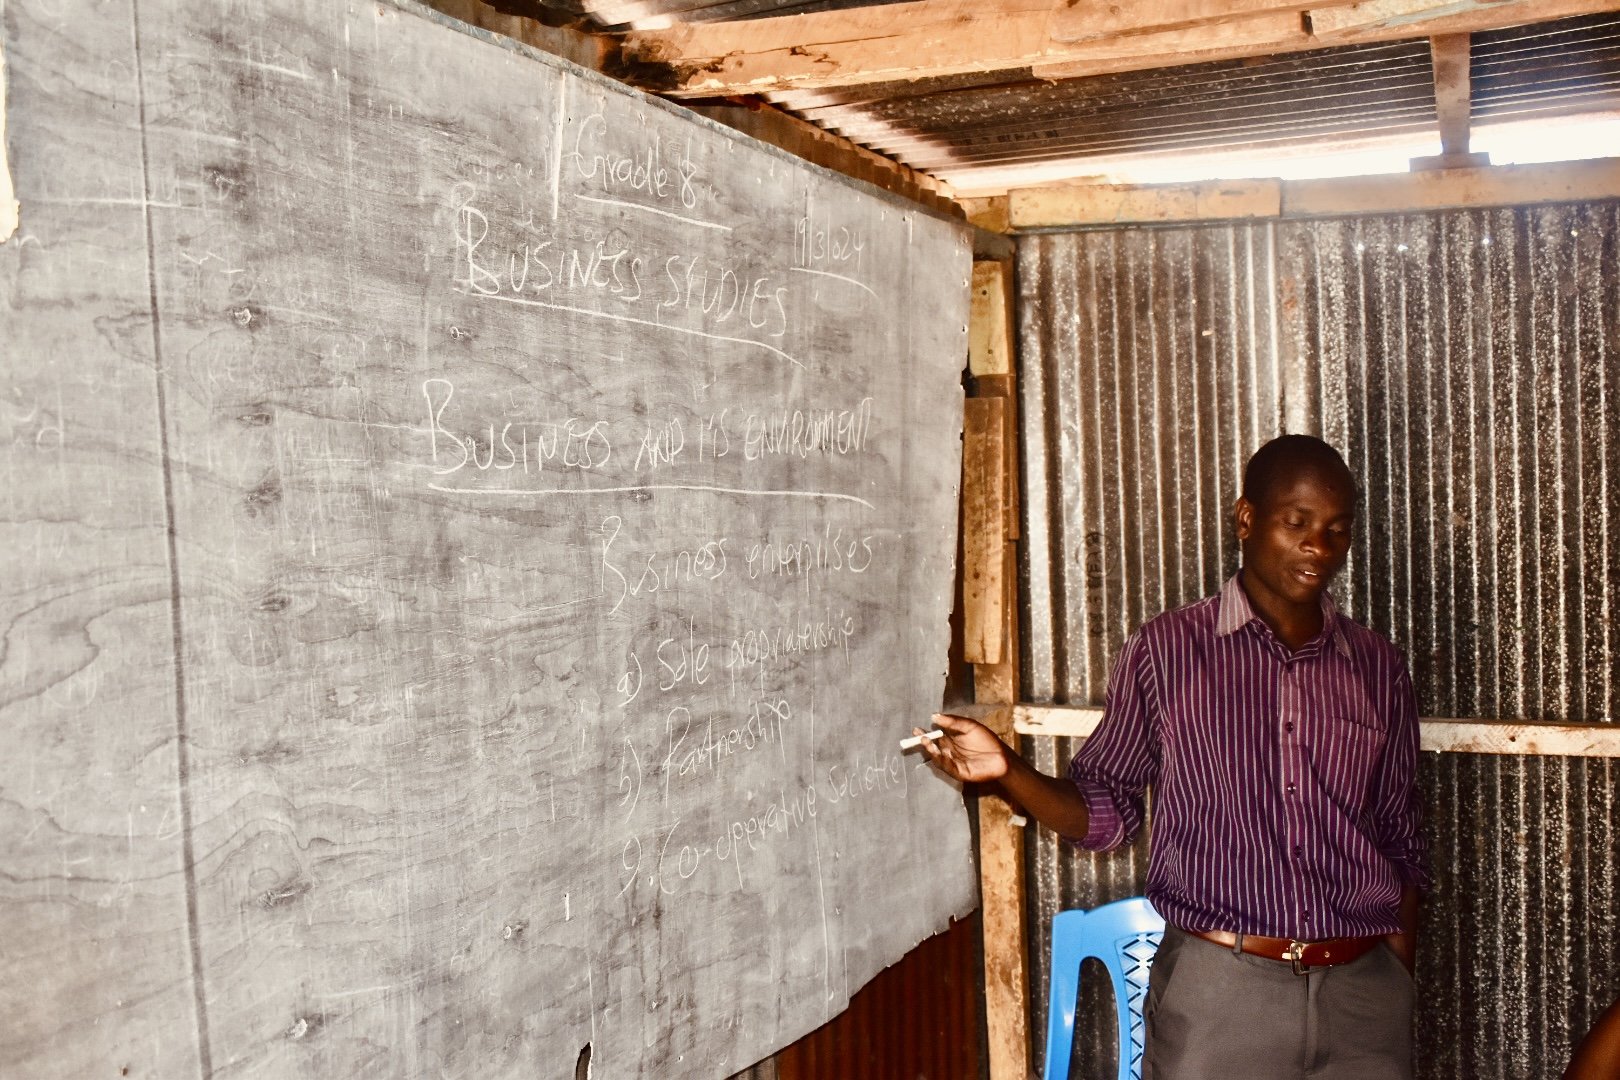 Grade 8
BUSINESS STUDIES
19/3/024
BUSINESS AND ITS ENVIRONMENT
Business enterprises
a) Sole propriatership
b) Partnership
9. Co-operative Societies